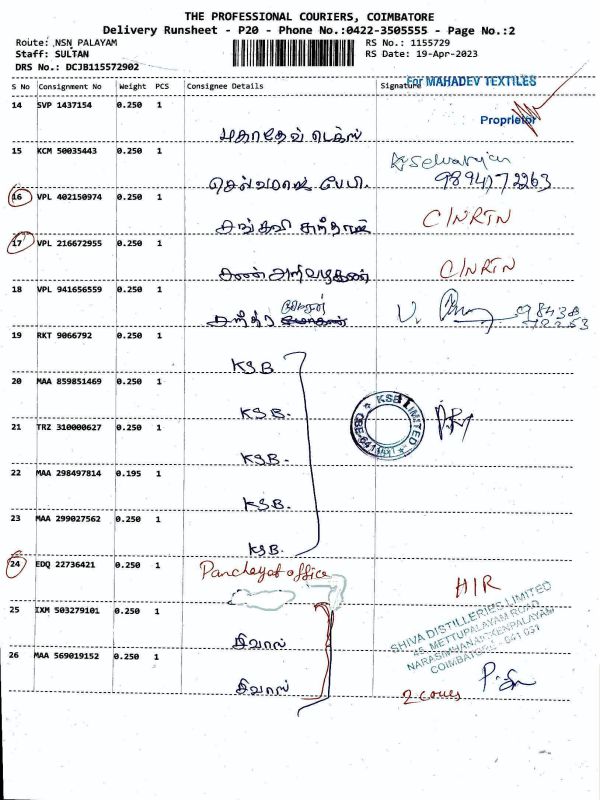 THE PROFESSIONAL COURIERS, COIMBATORE
Delivery Runsheet - P20 - Phone No.:0422-3505555 - Page No.:2
Route: NSN PALAYAM RS No.: 1155729
Staff: SULTAN RS Date: 19-Apr-2023
DRS No.: DCJB115572902
S No Consignment No Weight PCS Consignee Details Signature
For MAHADEV TEXTILES
14 SVP 1437154 0.250 1
Proprietor
மகாதேவ் டெக்ஸ்
15 KCM 50035443 0.250 1
செல்வராஜ் பேபி.
16 VPL 402150974 0.250 1
C/NRTN
17 VPL 216672955 0.250 1
C/NRTN
18 VPL 941656559 0.250 1
19 RKT 9066792 0.250 1
KSB
20 MAA 859851469 0.250 1
KSB LIMITED
KSB.
21 TRZ 310000627 0.250 1
KSB.
22 MAA 298497814 0.195 1
KSB.
23 MAA 299027562 0.250 1
KSB.
24 EDQ 22736421 0.250 1 Panchayat office
H/R
25 IXM 503279101 0.250 1
SHIVA DISTILLERIES LIMITED
METTUPALAYAM ROAD
NARASIMHANAICKENPALAYAM
COIMBATORE - 641 031
சிவாஸ்
26 MAA 569019152 0.250 1
சிவாஸ்
2 coves